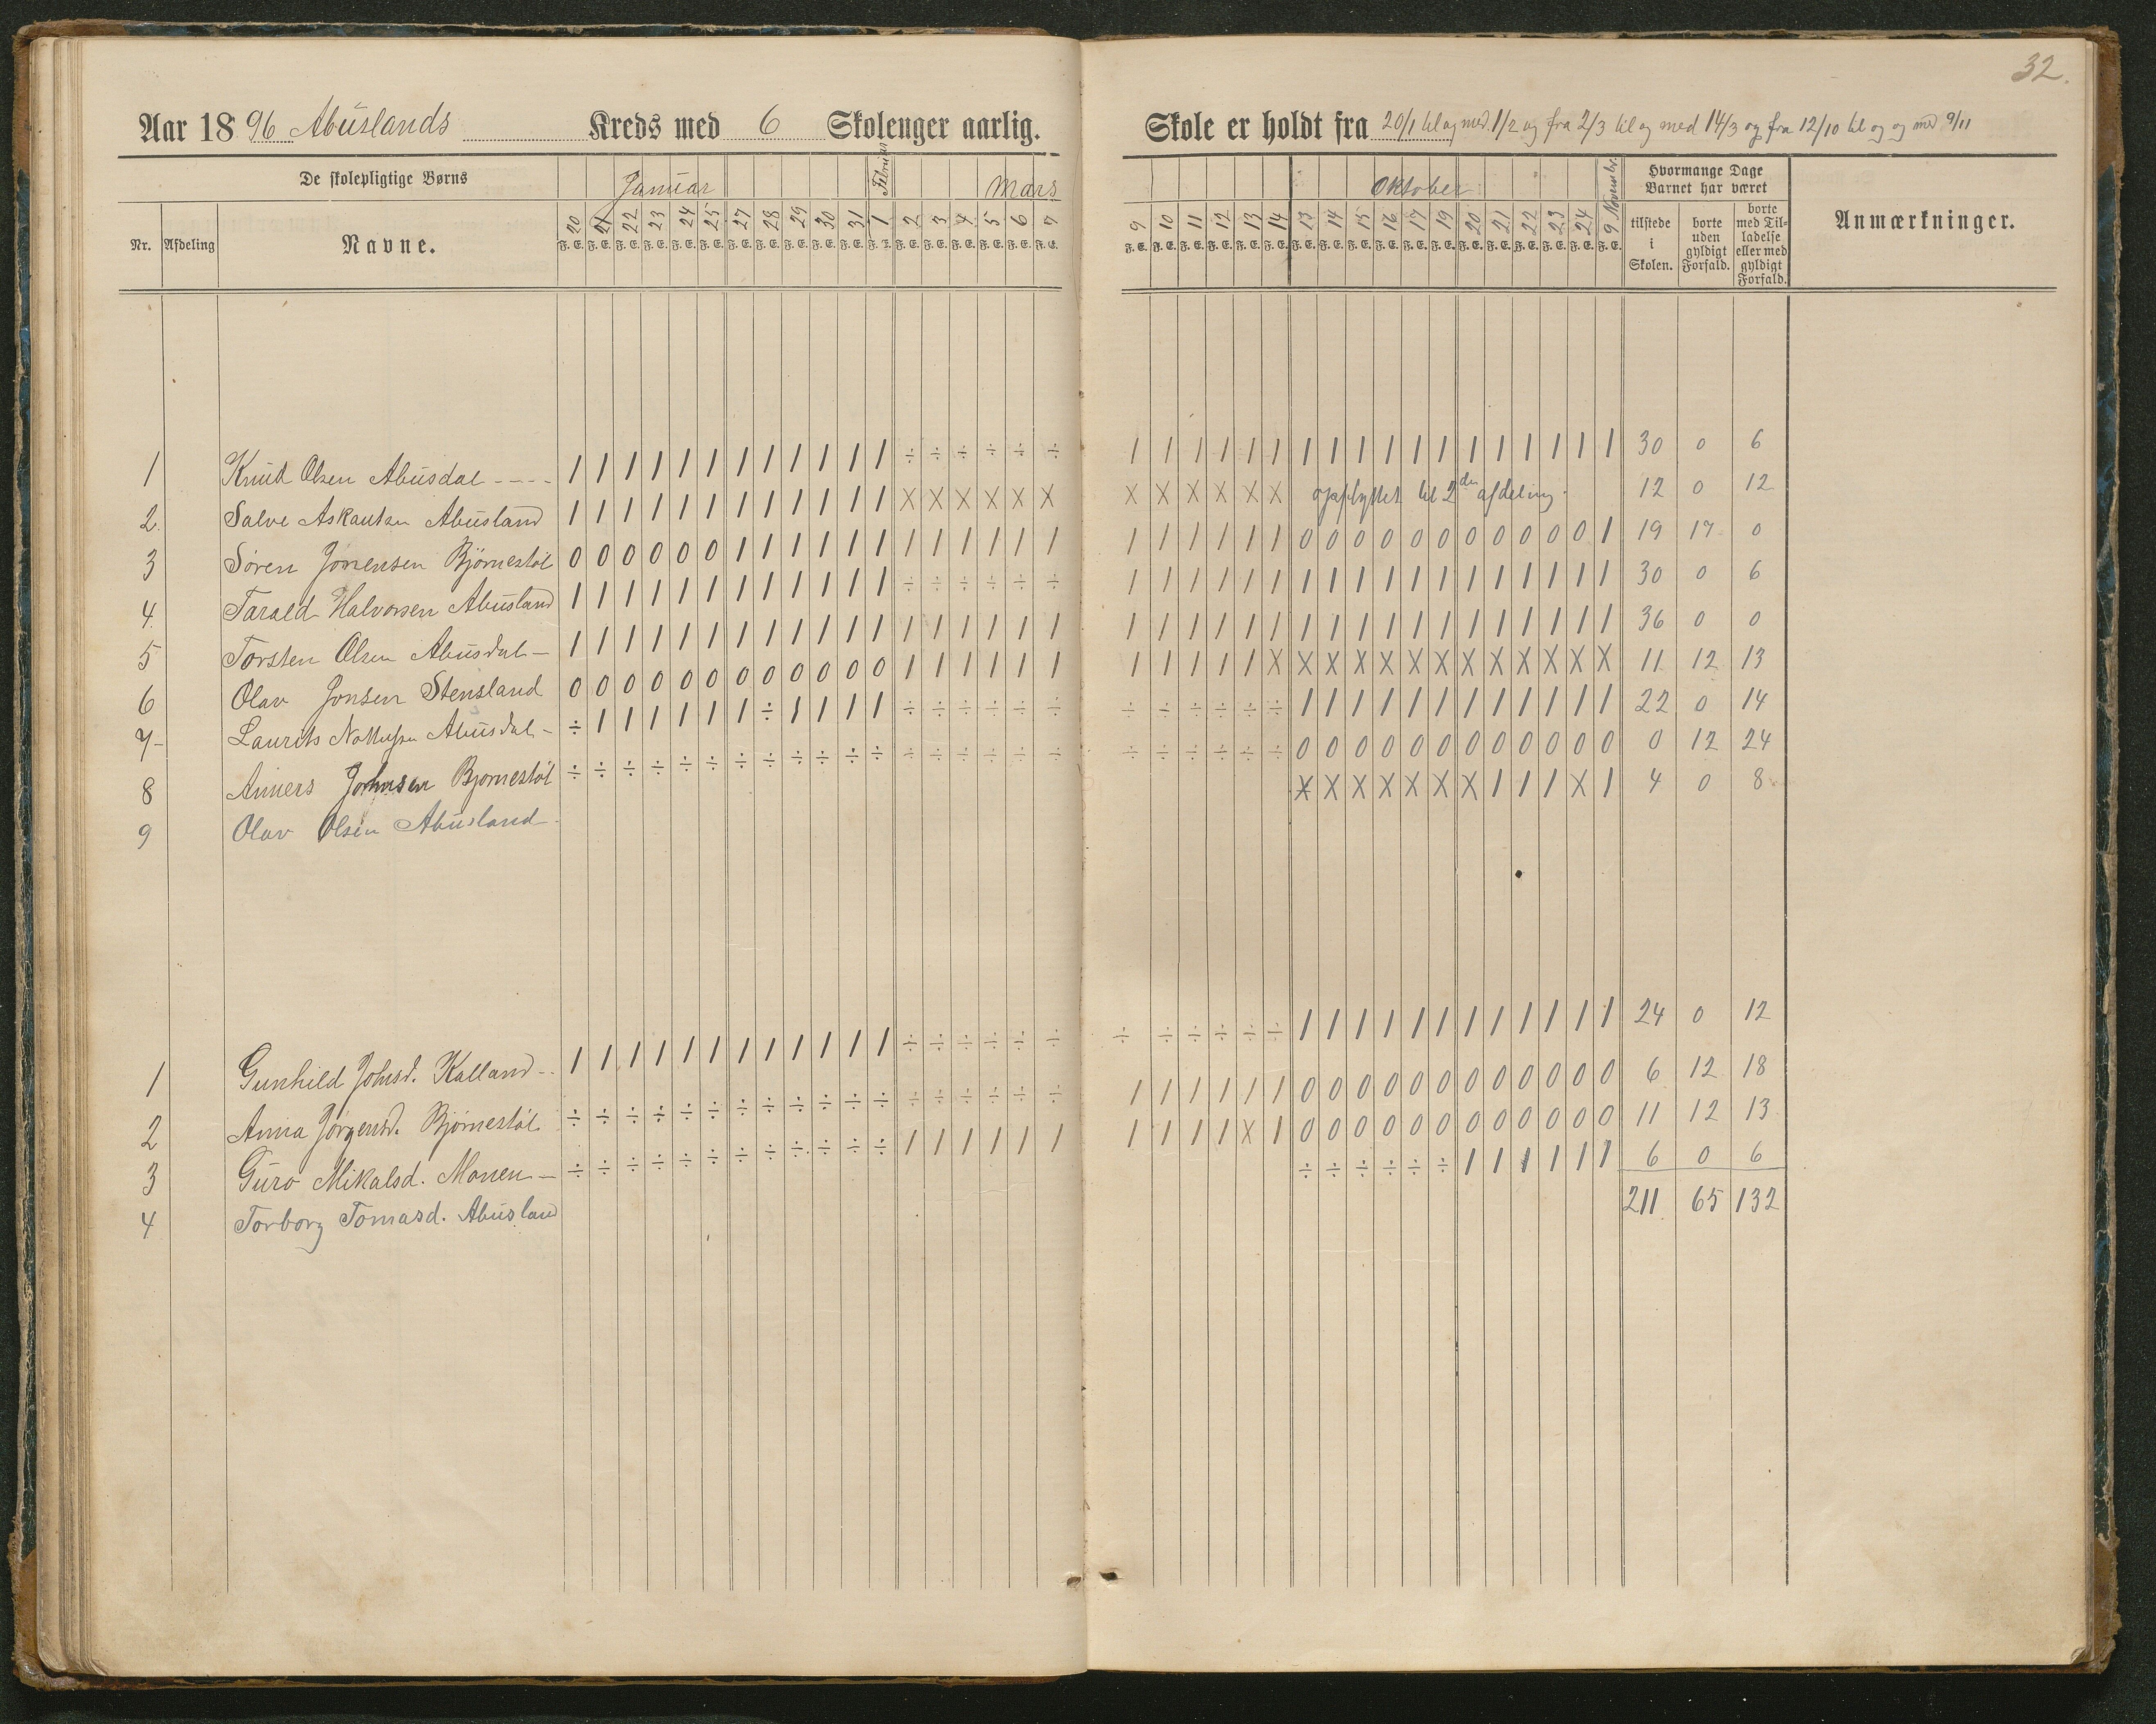 32.
Aar 1896 Abuslands Kreds med 6 Skolenger aarlig.
Skole er holdt fra 20/1 til og med 1/2 og fra 2/3 til og med 14/3 og fra 12/10 til og og med 9/11
De skolepligtige Børns Januar Februar Mars
Oktober November Hvormange Dage Barnet har været
Nr. Afdeling Navne. 20 21 22 23 24 25 27 28 29 30 31 1 2 3 4 5 6 7
9 10 11 12 13 14 13 14 15 16 17 19 20 21 22 23 24 9 tilstede i Skolen. borte uden gyldigt Forfald. borte med Tilladelse eller med gyldigt Forfald. Anmærkninger.
F. E. F. E. F. E. F. E. F. E. F. E. F. E. F. E. F. E. F. E. F. E. F. E. F. E. F. E. F. E. F. E. F. E. F. E.
F. E. F. E. F. E. F. E. F. E. F. E. F. E. F. E. F. E. F. E. F. E. F. E. F. E. F. E. F. E. F. E. F. E. F. E.
1 Knud Olsen Abusdal - - - - 1 1 1 1 1 1 1 1 1 1 1 1 ÷ ÷ ÷ ÷ ÷ ÷ 1 1 1 1 1 1 1 1 1 1 1 1 1 1 1 1 1 1 30 0 6
2. Salve Askautsen Abusland 1 1 1 1 1 1 1 1 1 1 1 1 X X X X X X X X X X X X opflyttet til 2den afdeling. 12 0 12
3 Søren Jørrensen Bjørnestøl 0 0 0 0 0 0 1 1 1 1 1 1 1 1 1 1 1 1 1 1 1 1 1 1 0 0 0 0 0 0 0 0 0 0 0 1 19 17 0
4. Tarald Halvorsen Abusland 1 1 1 1 1 1 1 1 1 1 1 1 ÷ ÷ ÷ ÷ ÷ ÷ 1 1 1 1 1 1 1 1 1 1 1 1 1 1 1 1 1 1 30 0 6
5 Torsten Olsen Abusdal - 1 1 1 1 1 1 1 1 1 1 1 1 1 1 1 1 1 1 1 1 1 1 1 1 1 1 1 1 1 1 1 1 1 1 1 1 36 0 0
6 Olav Jonsen Stensland 0 0 0 0 0 0 0 0 0 0 0 0 1 1 1 1 1 1 1 1 1 1 1 X X X X X X X X X X X X X 11 12 13
7 - Laurits Abusdal - ÷ 1 1 1 1 1 1 ÷ 1 1 1 1 ÷ ÷ ÷ ÷ ÷ ÷ ÷ ÷ ÷ ÷ ÷ ÷ 1 1 1 1 1 1 1 1 1 1 1 1 22 0 14
8 Anners Johnsen Bjørnestøl ÷ ÷ ÷ ÷ ÷ ÷ ÷ ÷ ÷ ÷ ÷ ÷ ÷ ÷ ÷ ÷ ÷ ÷ ÷ ÷ ÷ ÷ ÷ ÷ 0 0 0 0 0 0 0 0 0 0 0 0 0 12 24
9 Olav Olsen Abusland - X X X X X X X 1 1 1 X 1 4 0 8
1 Gunhild Johnsd. Kalland - - 1 1 1 1 1 1 1 1 1 1 1 1 ÷ ÷ ÷ ÷ ÷ ÷ ÷ ÷ ÷ ÷ ÷ ÷ 1 1 1 1 1 1 1 1 1 1 1 1 24 0 12
2 Anna Jørgensd. Bjørnestøl ÷ ÷ ÷ ÷ ÷ ÷ ÷ ÷ ÷ ÷ ÷ ÷ ÷ ÷ ÷ ÷ ÷ ÷ 1 1 1 1 1 1 0 0 0 0 0 0 0 0 0 0 0 0 6 12 18
3 Guro Mikalsd. Monen - ÷ ÷ ÷ ÷ ÷ ÷ ÷ ÷ ÷ ÷ ÷ ÷ 1 1 1 1 1 1 1 1 1 1 X 1 0 0 0 0 0 0 0 0 0 0 0 0 11 12 13
4 Torborg Tomasd. Abusland ÷ ÷ ÷ ÷ ÷ ÷ 1 1 1 1 1 1 6 0 6
211 65 132